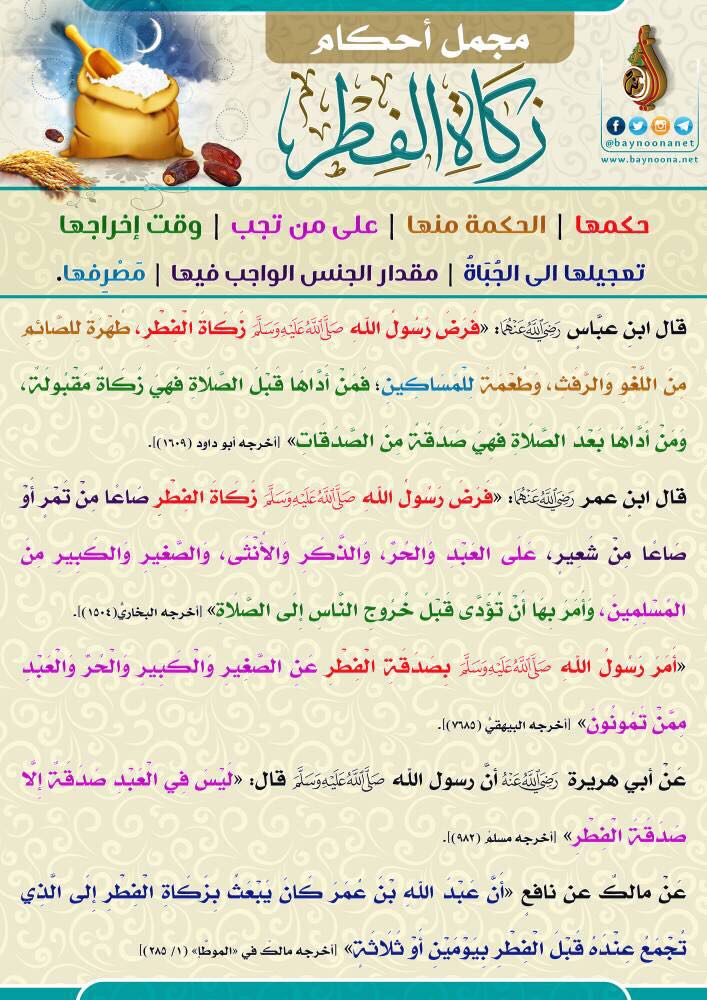 مجمل أحكام
زكاة الفطر
@baynoonanet
www.baynoona.net
حكمها | الحكمة منها | على من تجب | وقت إخراجها
تعجيلها الى الجُبَاةُ | مقدار الجنس الواجب فيها | مَصْرِفها.
قال ابن عبَّاس رَضِيَ اللَّهُ عَنْهُمَا: «فَرَضَ رَسُولُ اللهِ صَلَّى اللَّهُ عَلَيْهِ وَسَلَّمَ زَكَاةَ الْفِطْرِ، طُهْرَةً للصَّائِمِ
مِنَ اللَّغْوِ وَالرَّفَثِ، وَطُعْمَةً للْمَسَاكِينِ؛ فَمَنْ أَدَّاهَا قَبْلَ الصَّلَاةِ فَهِيَ زَكَاةٌ مَقْبُولَةٌ،
وَمَنْ أَدَّاهَا بَعْدَ الصَّلَاةِ فَهِيَ صَدَقَةٌ مِنَ الصَّدَقَاتِ» [أخرجه أبو داود (١٦٠٩)].
قال ابن عمر رَضِيَ اللَّهُ عَنْهُمَا: «فَرَضَ رَسُولُ اللهِ صَلَّى اللَّهُ عَلَيْهِ وَسَلَّمَ زَكَاةَ الْفِطْرِ صَاعًا مِنْ تَمْرٍ أَوْ
صَاعًا مِنْ شَعِيرٍ، عَلَى العَبْدِ وَالحُرِّ، وَالذَّكَرِ وَالأُنْثَى، وَالصَّغِيرِ وَالكَبِيرِ مِنَ
المُسْلِمِينَ، وَأَمَرَ بِهَا أَنْ تُؤَدَّى قَبْلَ خُرُوجِ النَّاسِ إِلَى الصَّلَاةِ» [أخرجه البخاريُّ(١٥٠٤)].
«أَمَرَ رَسُولُ اللهِ صَلَّى اللَّهُ عَلَيْهِ وَسَلَّمَ بِصَدَقَةِ الْفِطْرِ عَنِ الصَّغِيرِ وَالْكَبِيرِ وَالْحُرِّ وَالْعَبْدِ
مِمَّنْ تَمُونُونَ» [أخرجه البيهقيُّ (٧٦٨٥)].
عَنْ أبي هريرة رَضِيَ اللَّهُ عَنْهُ أنَّ رسول الله صَلَّى اللَّهُ عَلَيْهِ وَسَلَّمَ قال: «لَيْسَ فِي الْعَبْدِ صَدَقَةٌ إِلَّا
صَدَقَةُ الْفِطْرِ» [أخرجه مسلم (٩٨٢)].
عَنْ مالكٍ عن نافعٍ «أَنَّ عَبْدَ اللهِ بْنَ عُمَرَ كَانَ يَبْعَثُ بِزَكَاةِ الْفِطْرِ إِلَى الَّذِي
تُجْمَعُ عِنْدَهُ قَبْلَ الْفِطْرِ بِيَوْمَيْنِ أَوْ ثَلَاثَةٍ» [أخرجه مالك في «الموطأ» (١/ ٢٨٥)]